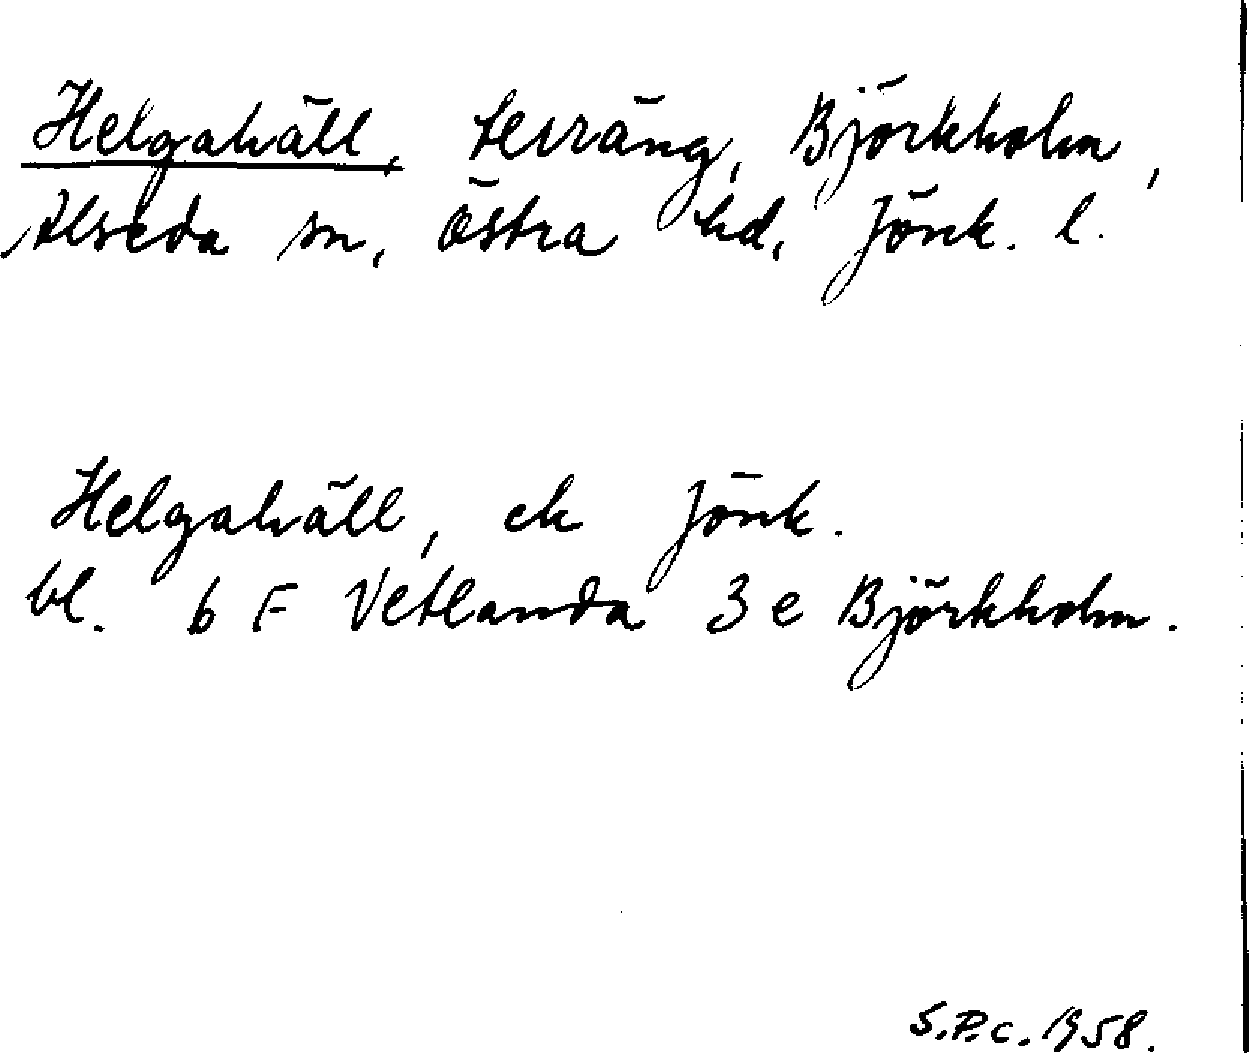 Helgahäll, terräng, Björkholm,
Alseda sn, Östra hd, Jönk. l.
Helgahäll, ek Jönk.
bl. 6 F Vetlanda 3 e Björkholm.
S.P.C. 1958.